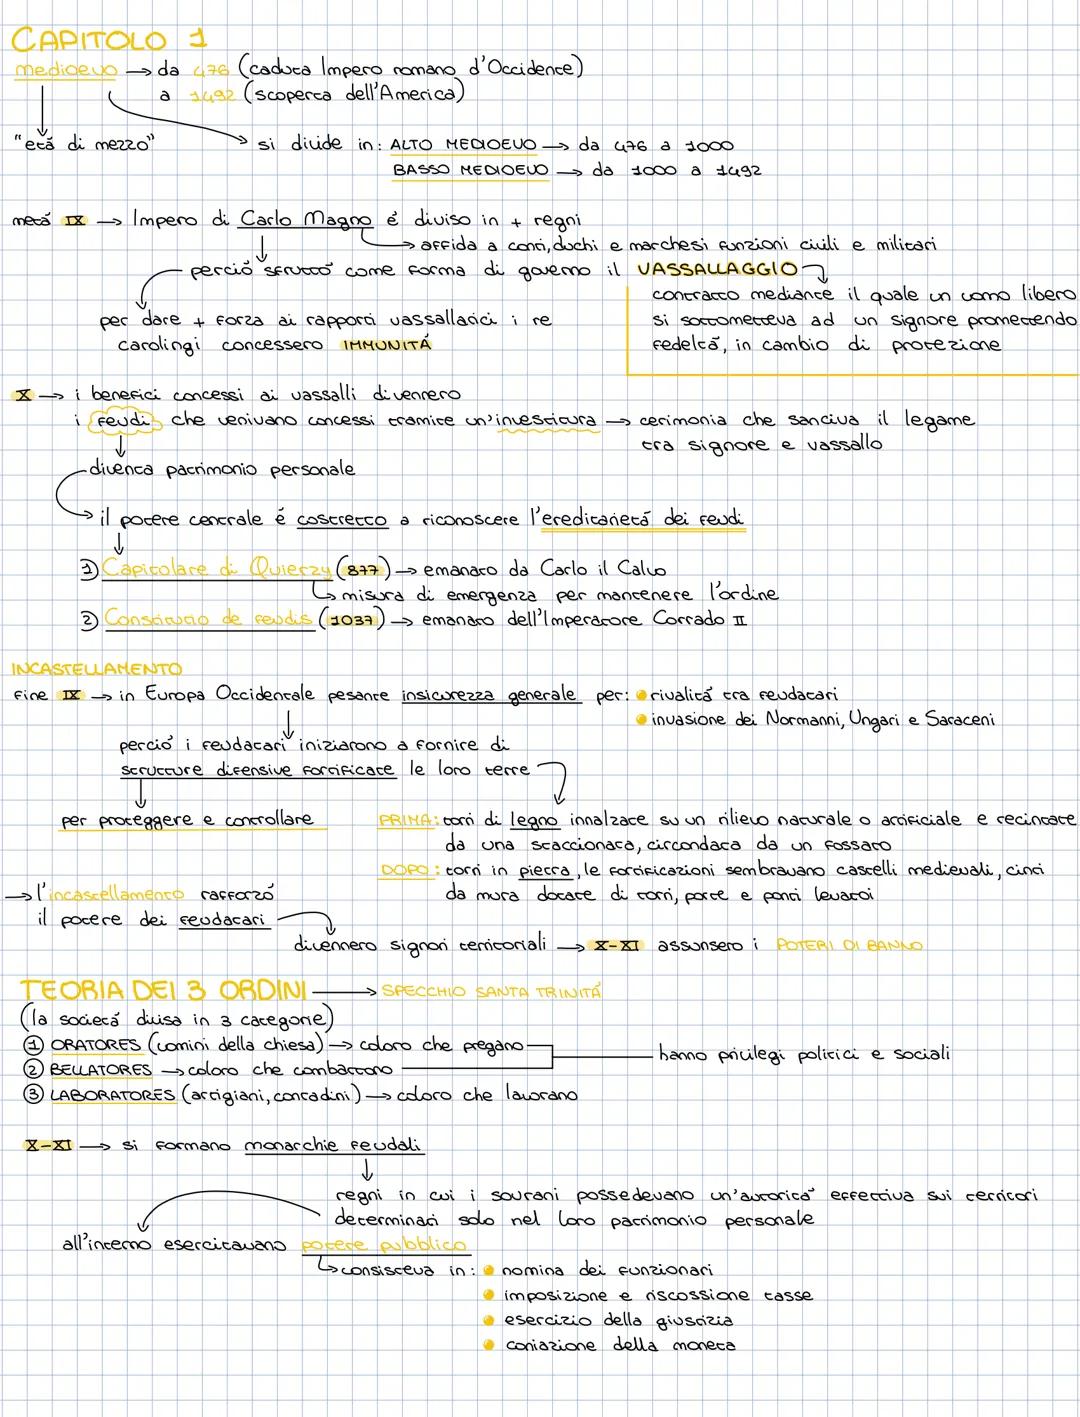 CAPITOLO 1
medioevo → da 476 (caduta Impero romano d'Occidente)
a 1492 (scoperta dell'America)
"etá di mezzo"
si divide in: ALTO MEDIOEVO → da 476 a 1000
BASSO MEDIOEVO → da 1000 a 1492
metá IX → Impero di Carlo Magno é diviso in + regni
→ affida a conti, duchi e marchesi funzioni civili e militari
perció sfruttó come forma di governo il VASSALLAGGIO
contratto mediante il quale un uomo libero
si sottometteva ad un signore promettendo
fedeltá, in cambio di protezione
per dare + forza ai rapporti vassallatici i re
carolingi concessero IMMUNITÁ
X → i benefici concessi ai vassalli divennero
i feudi che venivano concessi tramite un'investitura → cerimonia che sanciva il legame
tra signore e vassallo
diventa patrimonio personale
il potere centrale é costretto a riconoscere l'ereditarietá dei feudi
1) Capitolare di Quierzy (877) → emanato da Carlo il Calvo
↳ misura di emergenza per mantenere l'ordine
2) Constitutio de feudis (1037) → emanato dell'Imperatore Corrado II
INCASTELLAMENTO
fine IX → in Europa Occidentale pesante insicurezza generale per: • rivalitá tra feudatari
• invasione dei Normanni, Ungari e Saraceni
perció i feudatari iniziarono a fornire di
strutture difensive fortificate le loro terre
per proteggere e controllare
PRIMA: torri di legno innalzate su un rilievo naturale o artificiale e recintate
da una staccionata, circondata da un fossato
DOPO: torri in pietra, le fortificazioni sembravano castelli medievali, cinti
da mura dotate di torri, porte e ponti levatoi
→ l'incastellamento rafforzó
il potere dei feudatari
divennero signori territoriali → X-XI assunsero i POTERI DI BANNO
TEORIA DEI 3 ORDINI → SPECCHIO SANTA TRINITÁ
(la societá divisa in 3 categorie)
1 ORATORES (uomini della chiesa) → coloro che pregano
hanno privilegi politici e sociali
2 BELLATORES → coloro che combattono
3 LABORATORES (artigiani, contadini) → coloro che lavorano
X-XI → si formano monarchie feudali
regni in cui i sovrani possedevano un'autoritá effettiva sui territori
determinati solo nel loro patrimonio personale
all'interno esercitavano potere pubblico
↳ consisteva in: • nomina dei funzionari
• imposizione e riscossione tasse
• esercizio della giustizia
• coniazione della moneta